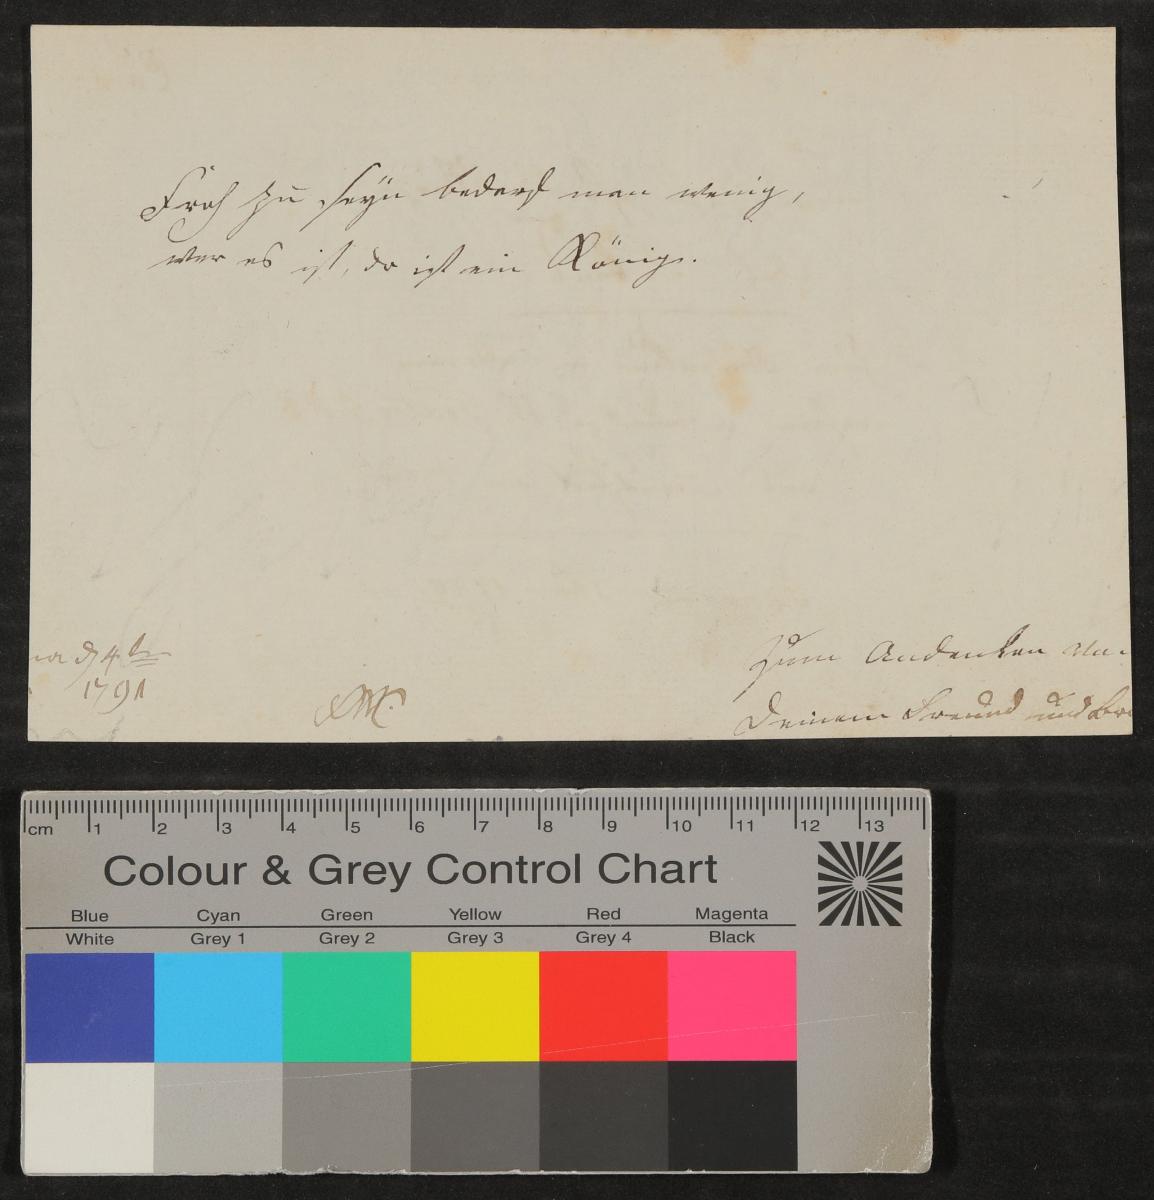 Froh zu seyn bedarf man wenig,
wer es ist, der ist ein König.
na d 4 t
1791
Zum Andenken an
Deinem Freund und Br
cm 1 2 3 4 5 6 7 8 9 10 11 12 13
Colour & Grey Control Chart
Blue Cyan Green Yellow Red Magenta
White Grey 1 Grey 2 Grey 3 Grey 4 Black